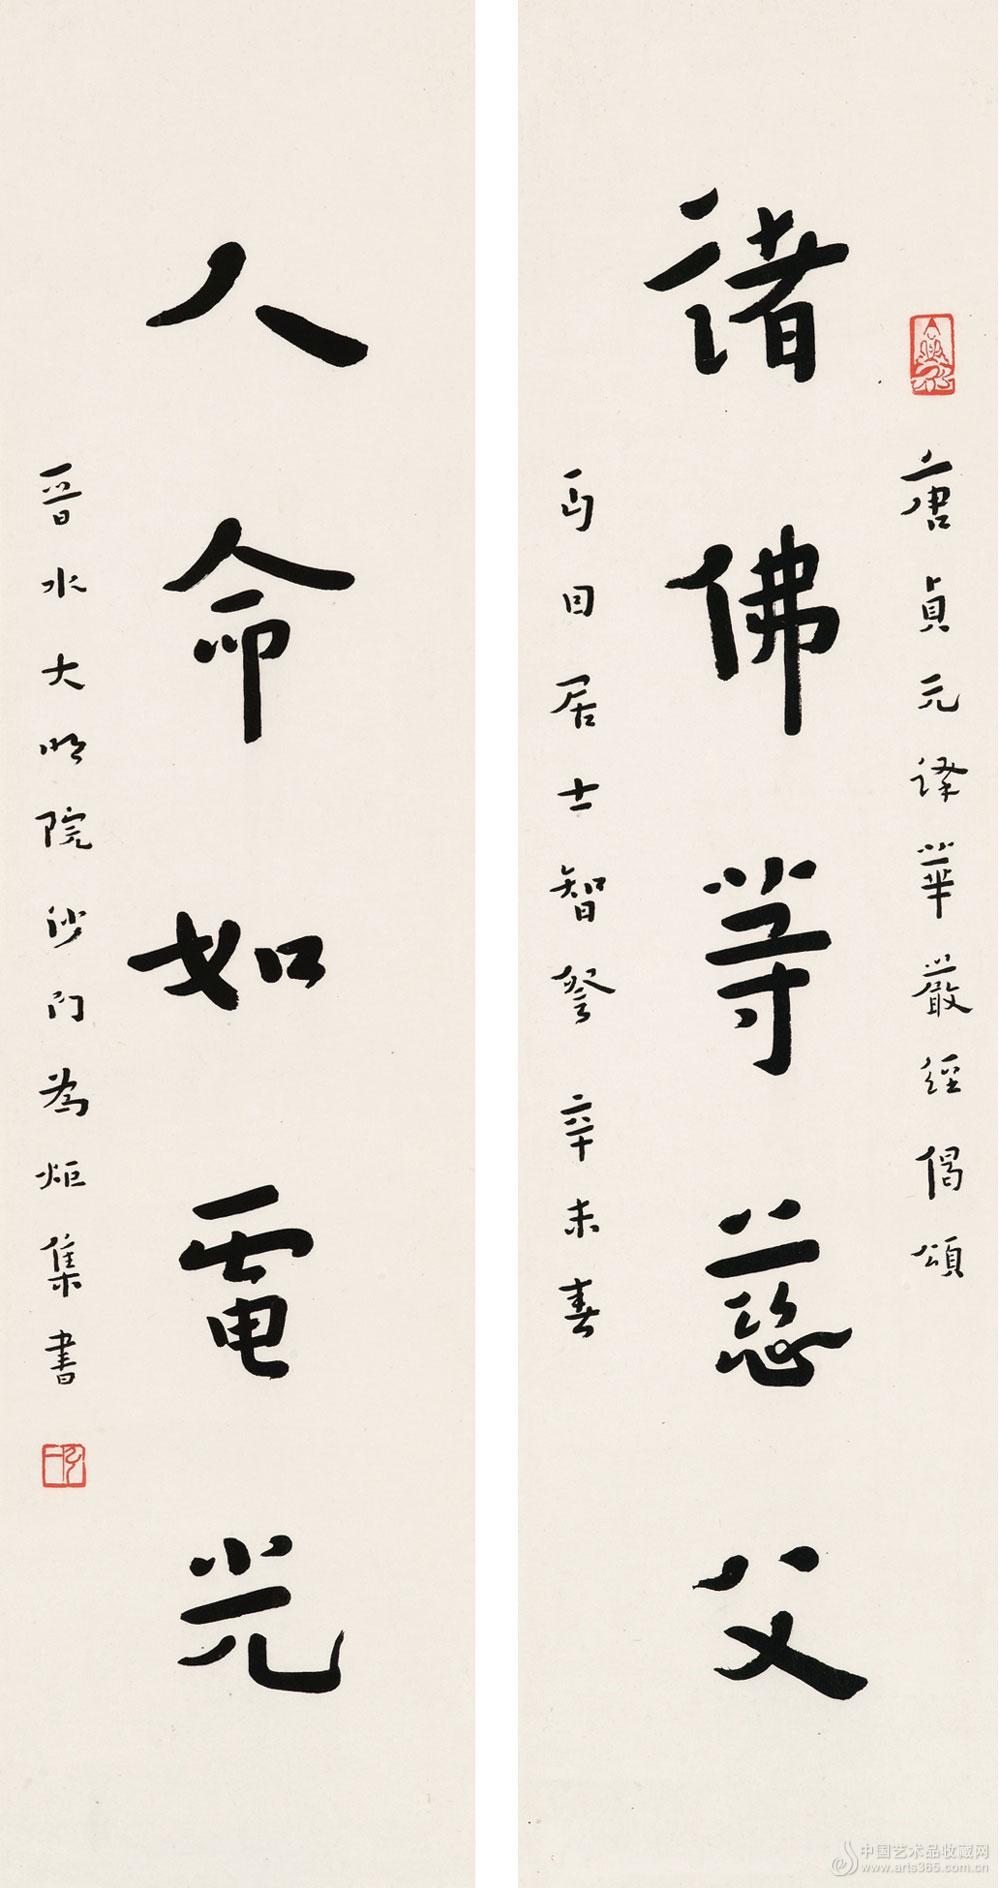 唐貞元譯華嚴經偈頌
諸佛等慈父
丏因居士智詧 辛未春
人命如電光
晉水大明院沙門為炬集書
弘一
中国艺术品收藏网
www.arts365.com.cn